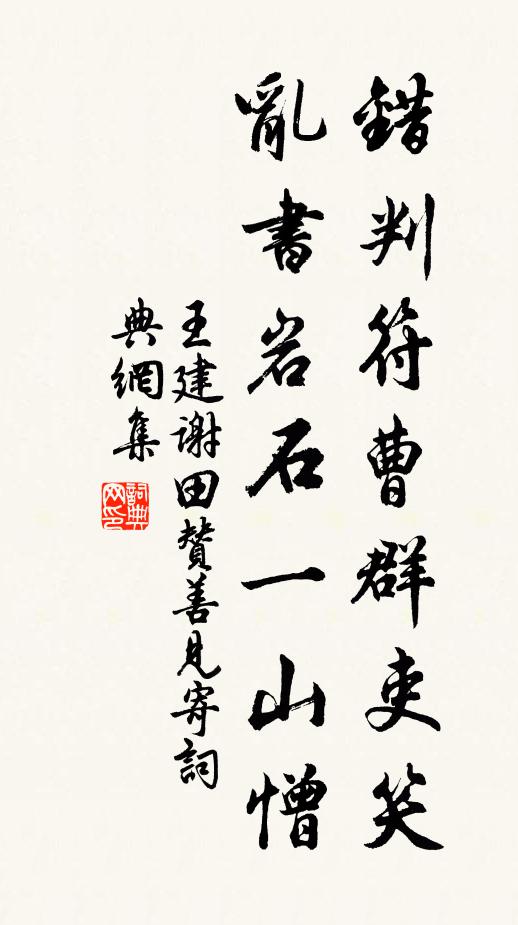 錯判符曹群吏笑
亂書岩石一山憎
王建謝田贊善見寄詞
典網集
詞典网印